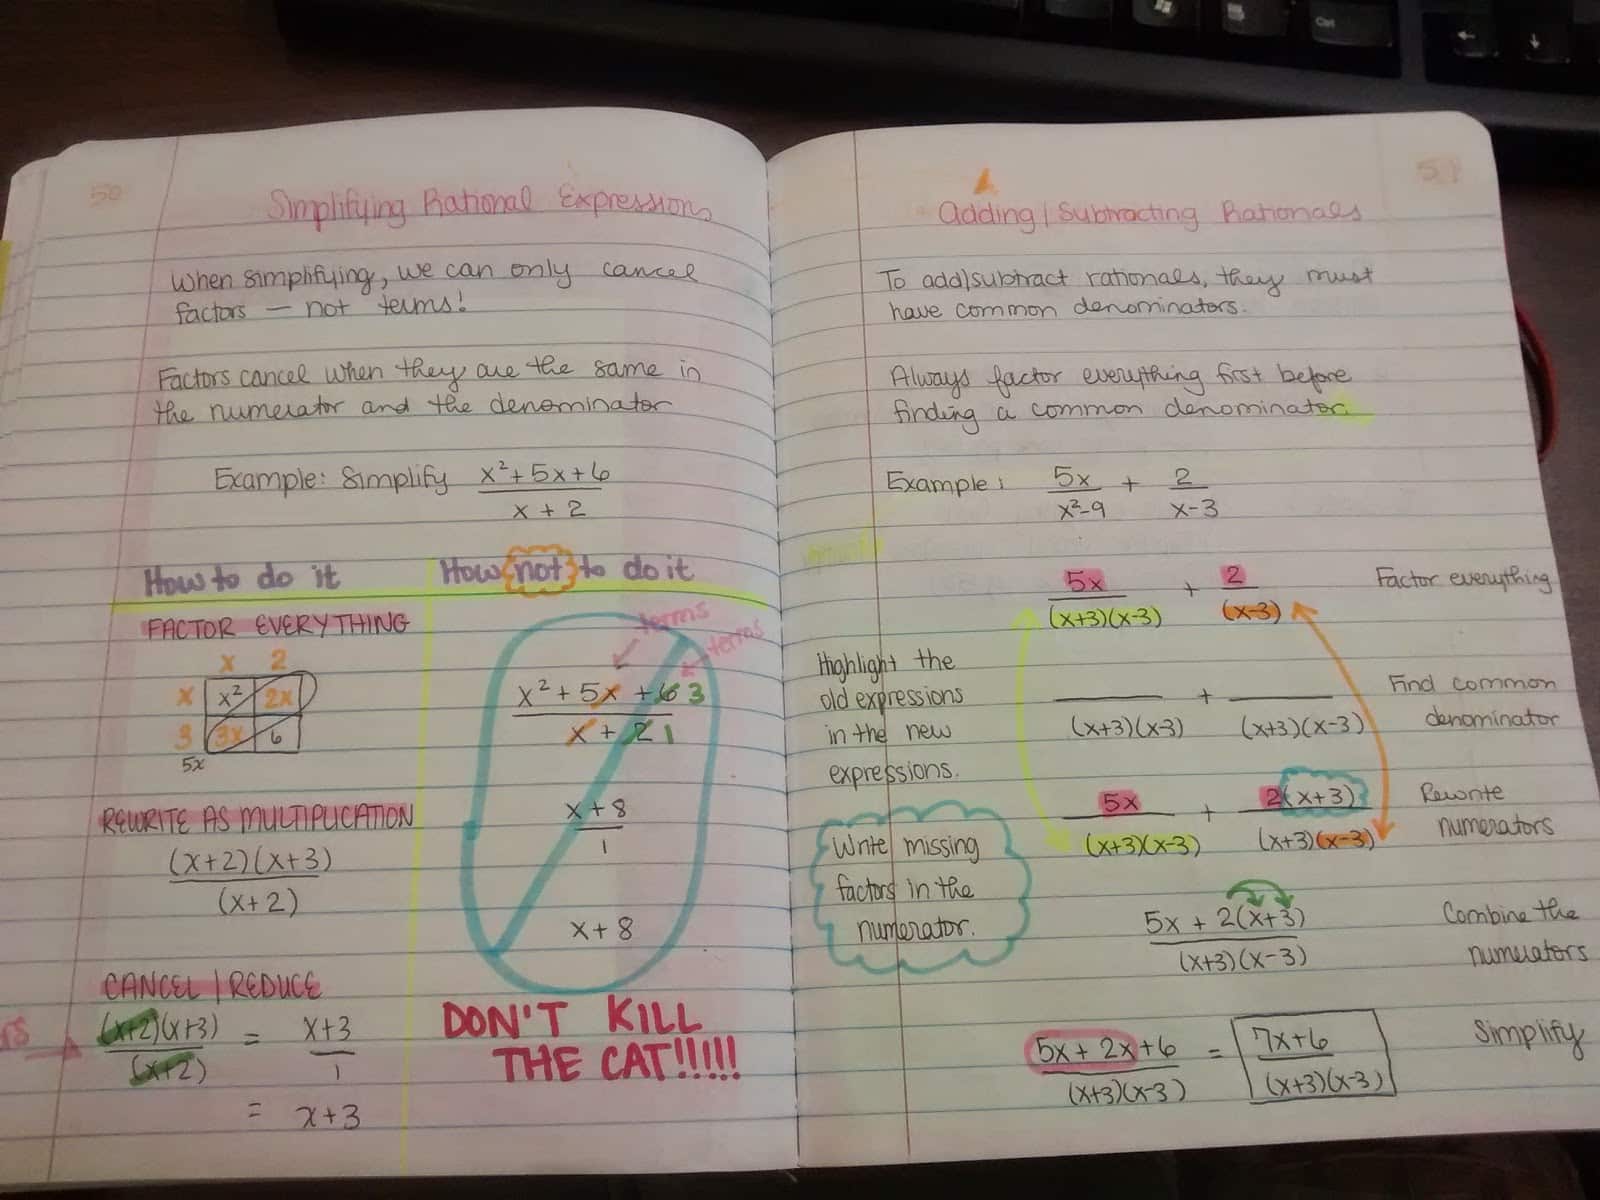 50
Simplifying Rational Expressions
When simplifying, we can only cancel
factors — not terms!
Factors cancel when they are the same in
the numerator and the denominator
Example: Simplify x²+5x+6
x + 2
How to do it
FACTOR EVERYTHING
x 2
x x² 2x
3 3x 6
5x
REWRITE AS MULTIPLICATION
(x+2)(x+3)
(x+2)
CANCEL | REDUCE
(x+2)(x+3) = x+3
(x+2) 1
= x+3
How not to do it
terms
terms
x² + 5x + 6 3
x + 2 1
x + 8
1
x + 8
DON'T KILL
THE CAT!!!!!
51
Adding | Subtracting Rationals
To add/subtract rationals, they must
have common denominators.
Always factor everything first before
finding a common denominator.
Example: 5x + 2
x²-9 x-3
5x + 2 Factor everything
(x+3)(x-3) (x-3)
Highlight the
old expressions
in the new
expressions.
+ Find common
(x+3)(x-3) (x+3)(x-3) denominator
5x + 2(x+3) Rewrite
(x+3)(x-3) (x+3)(x-3) numerators
Write missing
factors in the
numerator.
5x + 2(x+3) Combine the
(x+3)(x-3) numerators
5x + 2x + 6 = 7x+6 Simplify
(x+3)(x-3) (x+3)(x-3)
Ctrl